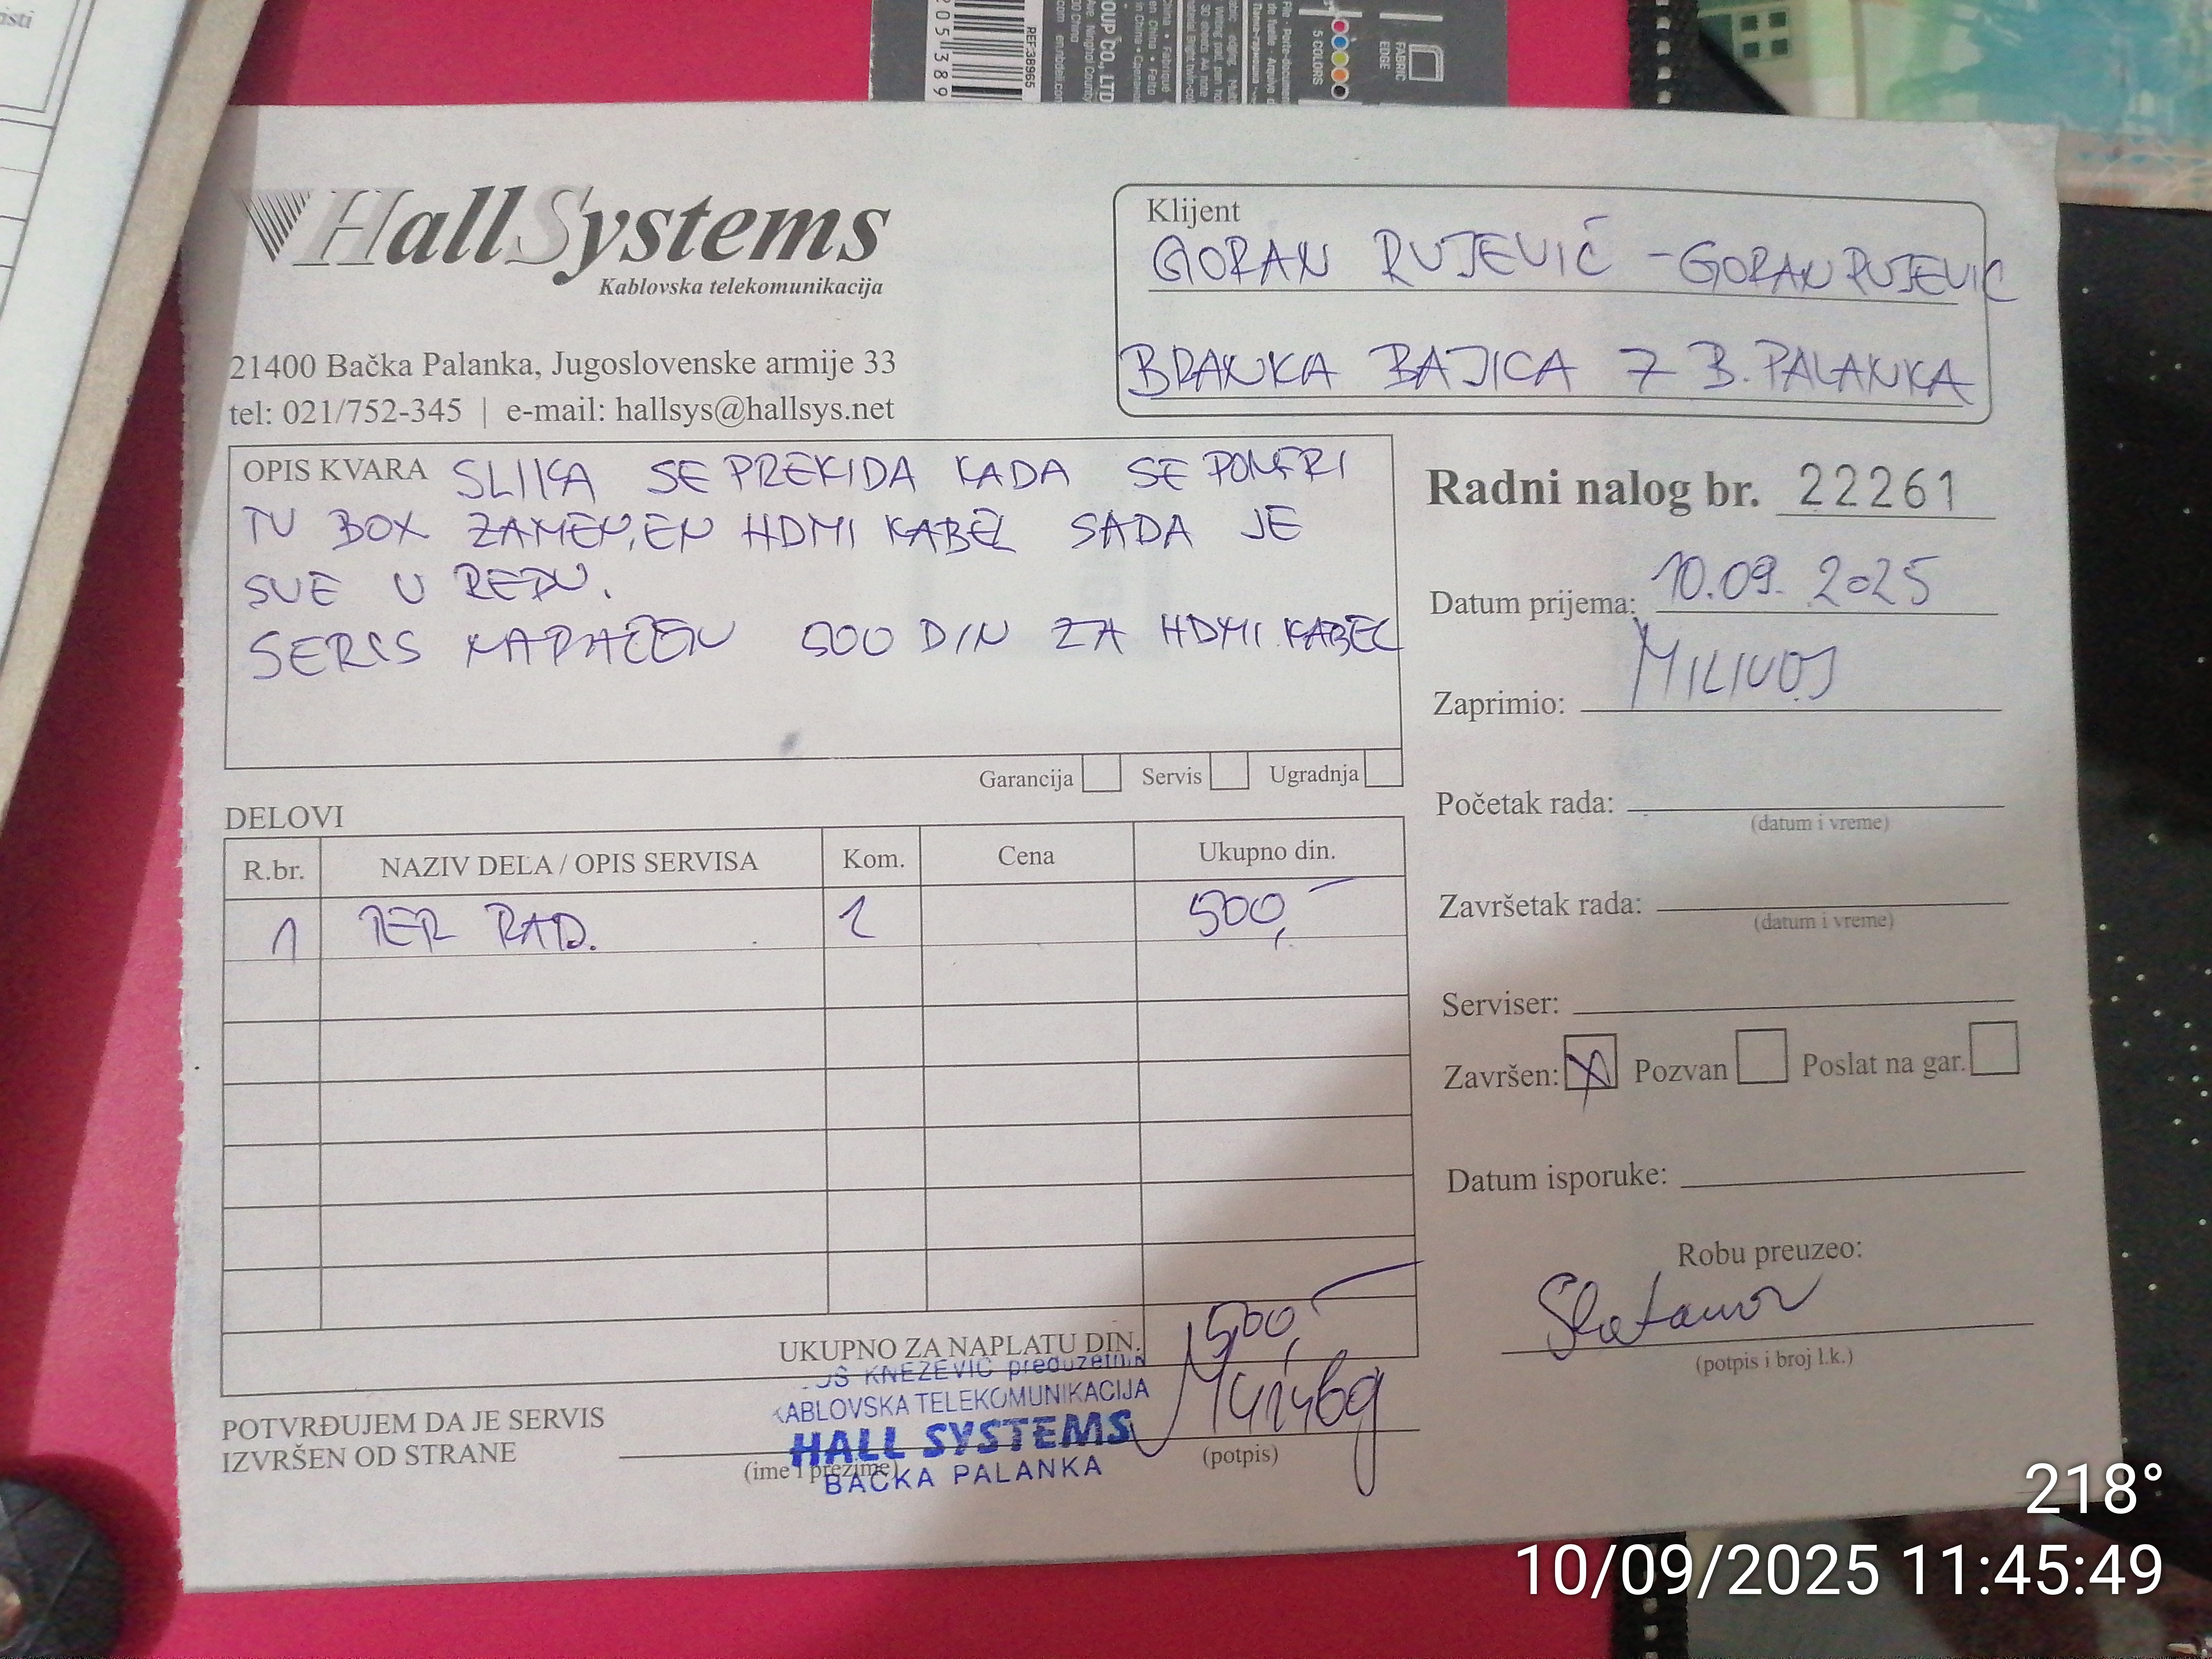 HallSystems
Kablovska telekomunikacija
21400 Bačka Palanka, Jugoslovenske armije 33
tel: 021/752-345 | e-mail: hallsys@hallsys.net
Klijent
GORAN RUJEVIĆ - GORANRUJEVIC
BRANKA BAJICA 7 B. PALANKA
OPIS KVARA SLIKA SE PREKIDA KADA SE POMERI
TV BOX ZAMENJEN HDMI KABEL SADA JE
SVE U REDU.
SERCS NAPAĆEN 500 DIN ZA HDMI KABEL
Garancija Servis Ugradnja
Radni nalog br. 22261
Datum prijema: 10.09.2025
Zaprimio: MILIVOJ
Početak rada:
(datum i vreme)
Završetak rada:
(datum i vreme)
Serviser:
Završen: X Pozvan Poslat na gar.
Datum isporuke:
Robu preuzeo:
(potpis i broj l.k.)
DELOVI
R.br. NAZIV DELA / OPIS SERVISA Kom. Cena Ukupno din.
1 TER RAD. 1 500,-
UKUPNO ZA NAPLATU DIN. 500,-
KNEŽEVIĆ preduzetnik
KABLOVSKA TELEKOMUNIKACIJA
HALL SYSTEMS
BAČKA PALANKA
POTVRĐUJEM DA JE SERVIS
IZVRŠEN OD STRANE
(ime i prezime)
(potpis)
REF:38965
205 389
OUP CO., LTD
5 COLORS
FABRIC
EDGE
218°
10/09/2025 11:45:49